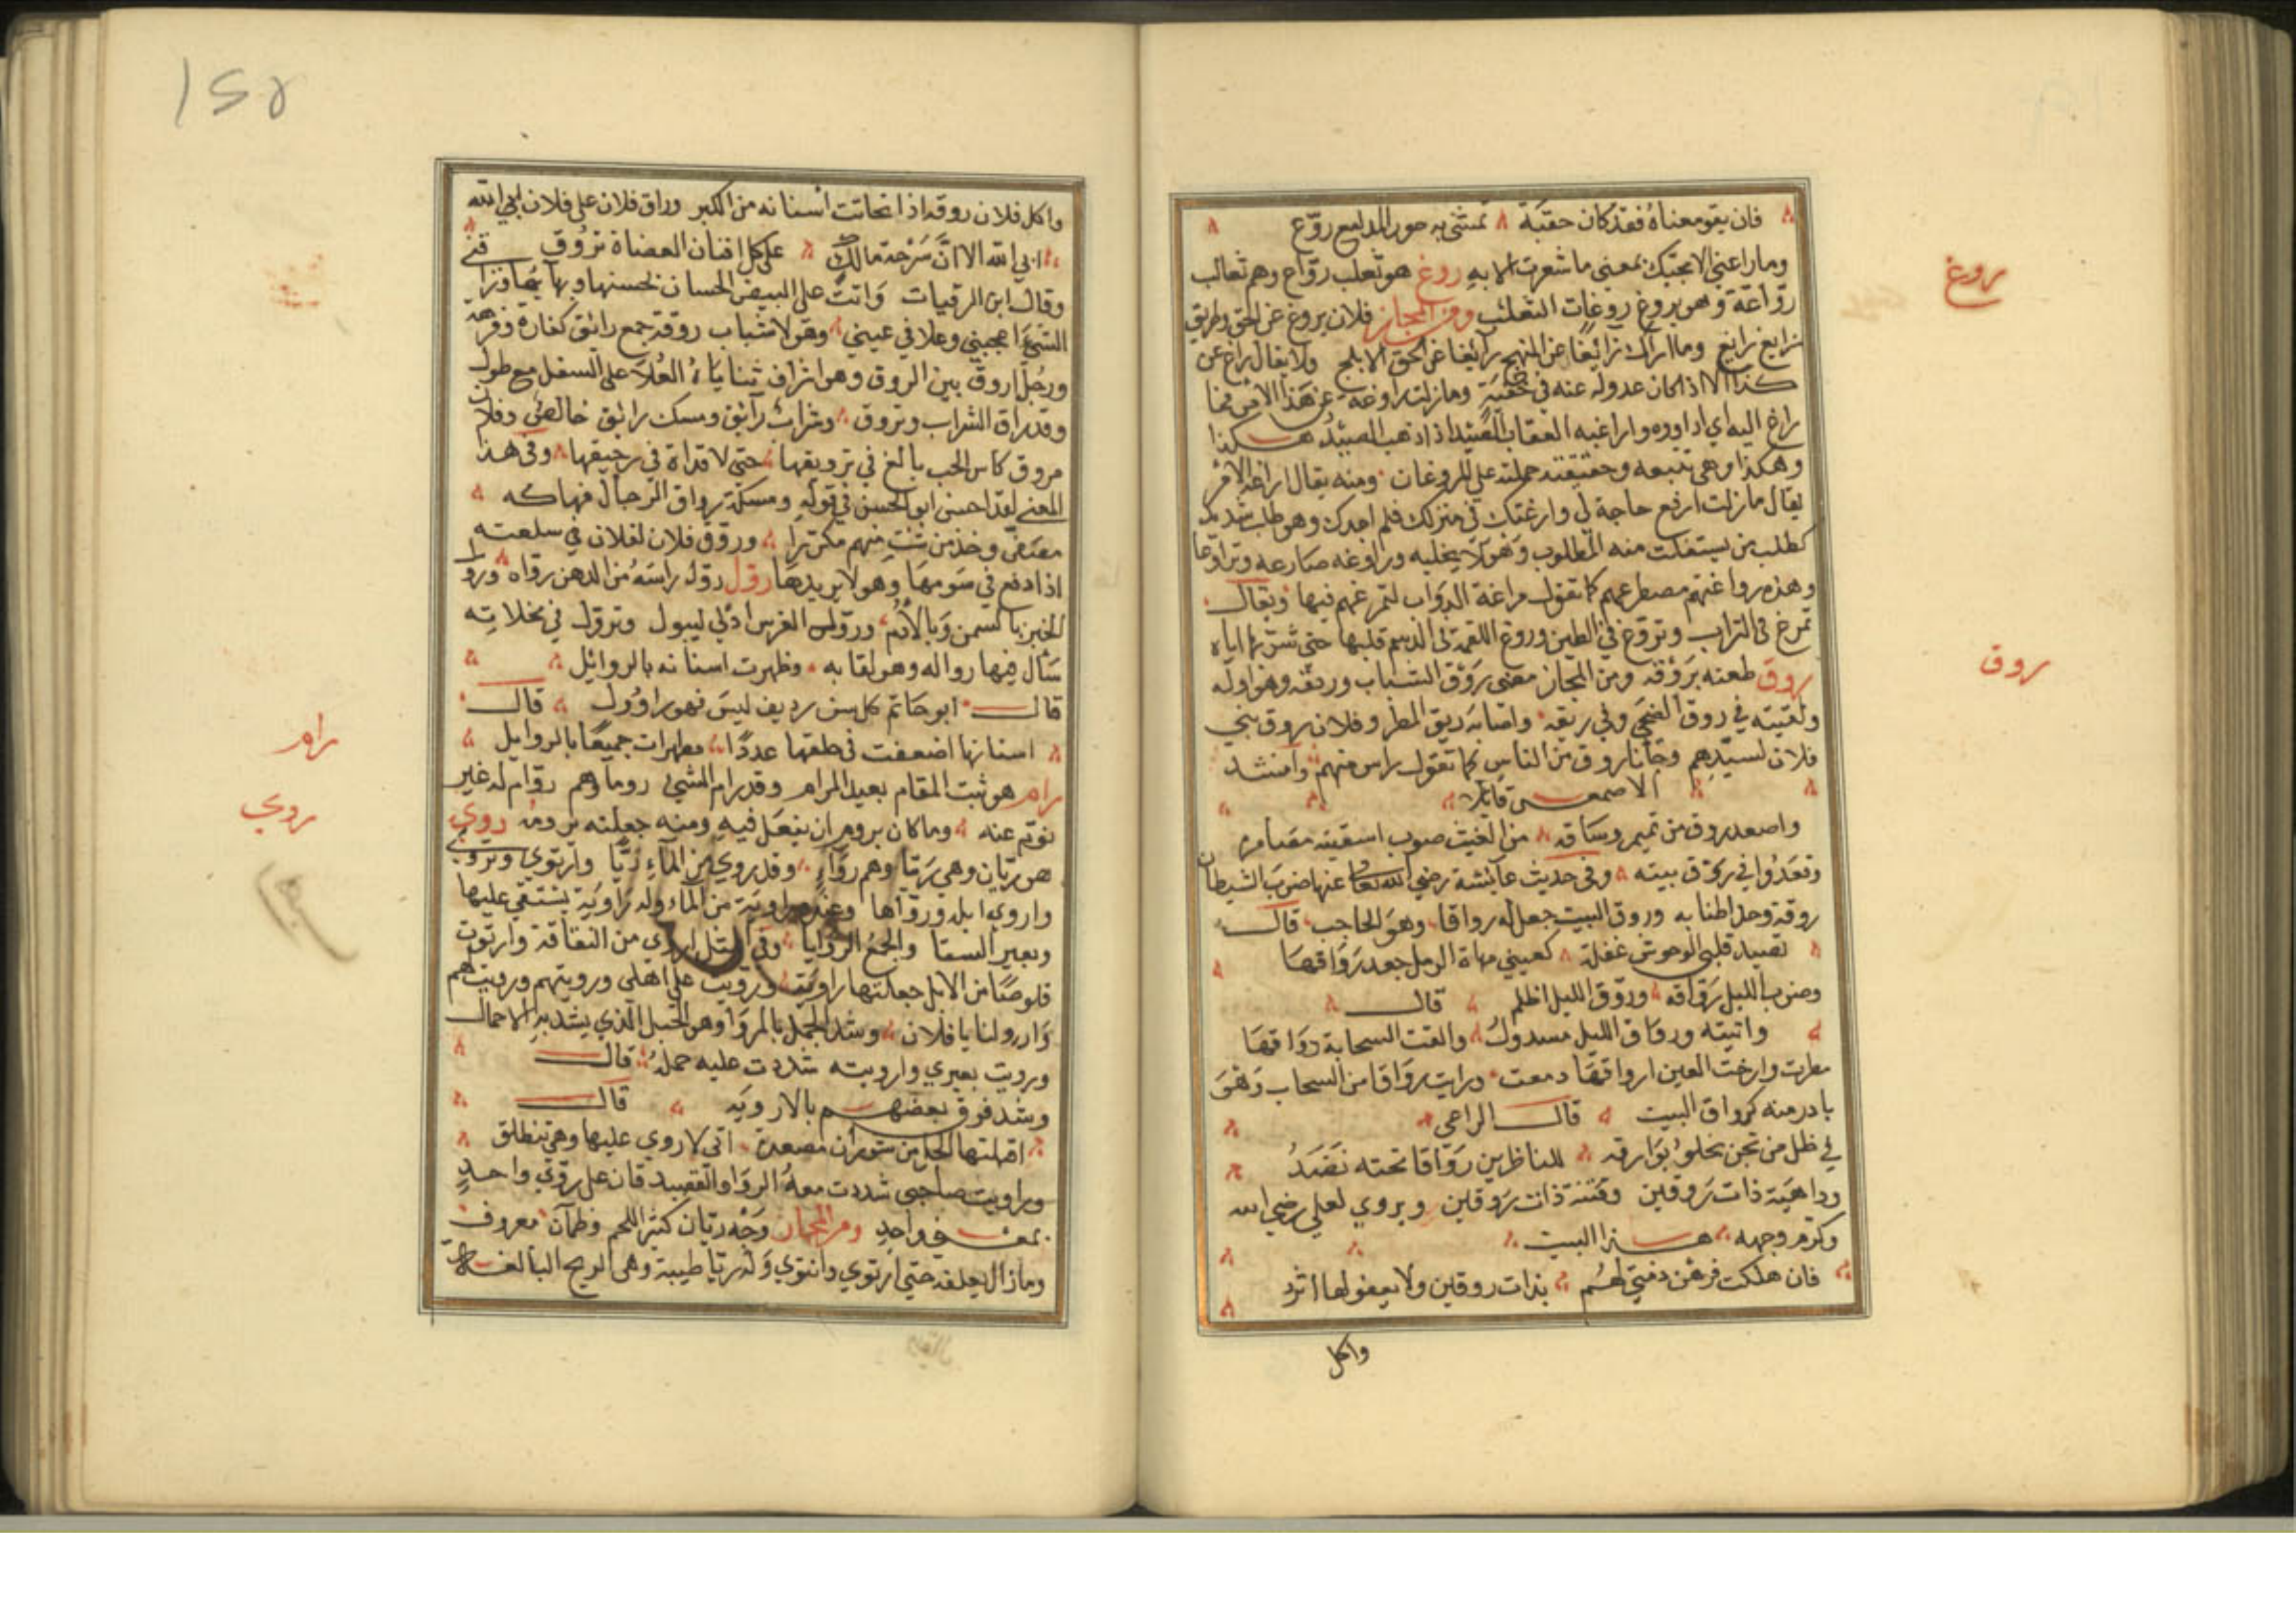 فان يقو معناهُ فقد كان حقبة تمشي به حور المدامع روّع
وما راعني الا مجيئك بمعنى ما شعرت الا به روغ هو ثعلب روّاغ وهم ثعالب
روّاغة وهو يروغ روغات الثعلب ومن المجاز فلان يروغ عن الحق وطريق
زايغ رايغ وما اراك زائغا عن المنهج رائغا عن الحق الابلج ولا يقال راغ عن
كذا الا اذا كان عدوله عنه في خفية وما زلت اراوغه عن هذا الامر فما
راغ اليه اي اداوره واراغبه العقاب الصيد اذا ذهب الصيد هكذا
وهكذا وهي تتبعه وحقيقته حملته على الروغان ومنه يقال اراغ الامر
يقال ما زلت اريغ حاجة لي وارغتك في منزلك فلم اجدك وهو طلب شديد
كطلب من يستفلت منه المطلوب وهو لا يخليه وراوغه صارعه وتراوغا
وهذه رواغتهم مصطرعهم كما تقول مراغة الدواب لتمرغهم فيها ويقال
تمرغ في التراب وتروغ في الطين وروغ اللقمة في الدسم قلبها حتى تشربها اياه
روق طعنه بروقه ومن المجاز مضى روق الشباب وريقه وهو اوله
ولقيته في روق الضحى وفي ريقه واصابه ريق المطر وفلان روق بني
فلان لسيدهم وجانا روق من الناس كما تقول راس منهم وانشد
الاصمعي قائلا
واصعد روق من تميم وساقه من الغيث صوب اسقيته مقامره
وقعدوا في روق بيته وفي حديث عائشة رضي الله تعالى عنها ضرب الشيطان
روقه وحل اطنابه وروق البيت جعل له رواقا وهو الحاجب قال
تصيد قلبي الوحوش غفلة كعيني مهاة الرمل جعد رواقها
وضرب الليل رواقه وروّق الليل اظلم قال
واتيته ورواق الليل مسدول والقت السحابة رواقها
مطرت وارخت العين ارواقها دمعت ورايت رواقا من السحاب وهو
بادر منه كرواق البيت قال الراعي
في ظل من تجن تحلو بوارقه للناظرين رواقا تحته نضد
وداهية ذات روقين وفتنة ذات روقين ويروي لعلي رضي الله
وكرم وجهه هذا البيت
فان هلكت فرهن ذمتي لهم بذات روقين لا يعفو لها اثر
واكل
روغ
روق
واكل فلان روقه اذا تحاتت اسنانه من الكبر وراق فلان على فلان ابي الله
ابي الله الا ان سرحة مالك على كل افنان العضاة تروق قني
وقال ابن الرقيات وانت على البيض الحسان بحسنها وبهائها وراق
الشيء اعجبني وعلا في عيني وهو لا شباب روقة جمع رائق كفاره وفرهة
ورجل اروق بين الروق وهو اشراف ثناياه العلا على السفل مع طول
وقد راق الشراب وتروق وشراب رائق ومسك رائق خالص وفلان
مروق كاس الحب بالغ في ترويقها حتى لا قذاة في رحيقها وفي هذا
المعنى لقد احسن ابو الحسن في قوله ومسكة رواق الرجال فهاكه
وروّق فلان لفلان في سلعته
اذا دفع في سومها وهو لا يريدها رول روّل راسه من الدهن رواه وروّل
الخبز بالسمن وبالادم وروّل الفرس ادلى ليبول وتروّل في مخلاته
سال فيها رواله وهو لعابه وظهرت اسنانه بالروائل
قال ابو حاتم كل سن رديف ليس فهو راوول قال
اسنانها اضعفت في حلقها عددًا مظهرات جميعًا بالروايل
رام هو ثبت المقام بعيد المرام وقد رام الشيء روما وهم روّام له غير
نوّم عنه وما كان يروم ان يفعل فيه ومنه جعلته يرومه روي
هو ريان وهي ريا وهم رواء وقد روي من الماء ريًّا وارتوى وتروى
واروى ابله وروّاها وعنده راوية من الماء وله راوية يستقي عليها
وبعير السقا والجمع الروايا وفي المثل اروي من النقاقة وارتوت
قلوصا من الابل جعلتها راوية ورويت على اهلي ورويتهم ورويت لهم
وارو لنا يا فلان وشد الجمل بالروا وهو الحبل الذي يشد به الاحمال
ورويت بعيري وارويته شددت عليه حمله قال
وشد فوق بعضهم بالارويه قال
اقبلتها الخل من شوران مصعدة اني لاروي عليها وهي تنطلق
وراويت صاحبي شددت معه الروا والقصيدتان على روي واحد
بمعنى واحد ومن المجاز وجه ريان كثير اللحم وظمآن معروف
وما زال يعلفه حتى ارتوى وانتوى وله ريا طيبة وهي الريح البالغة
رام
روي